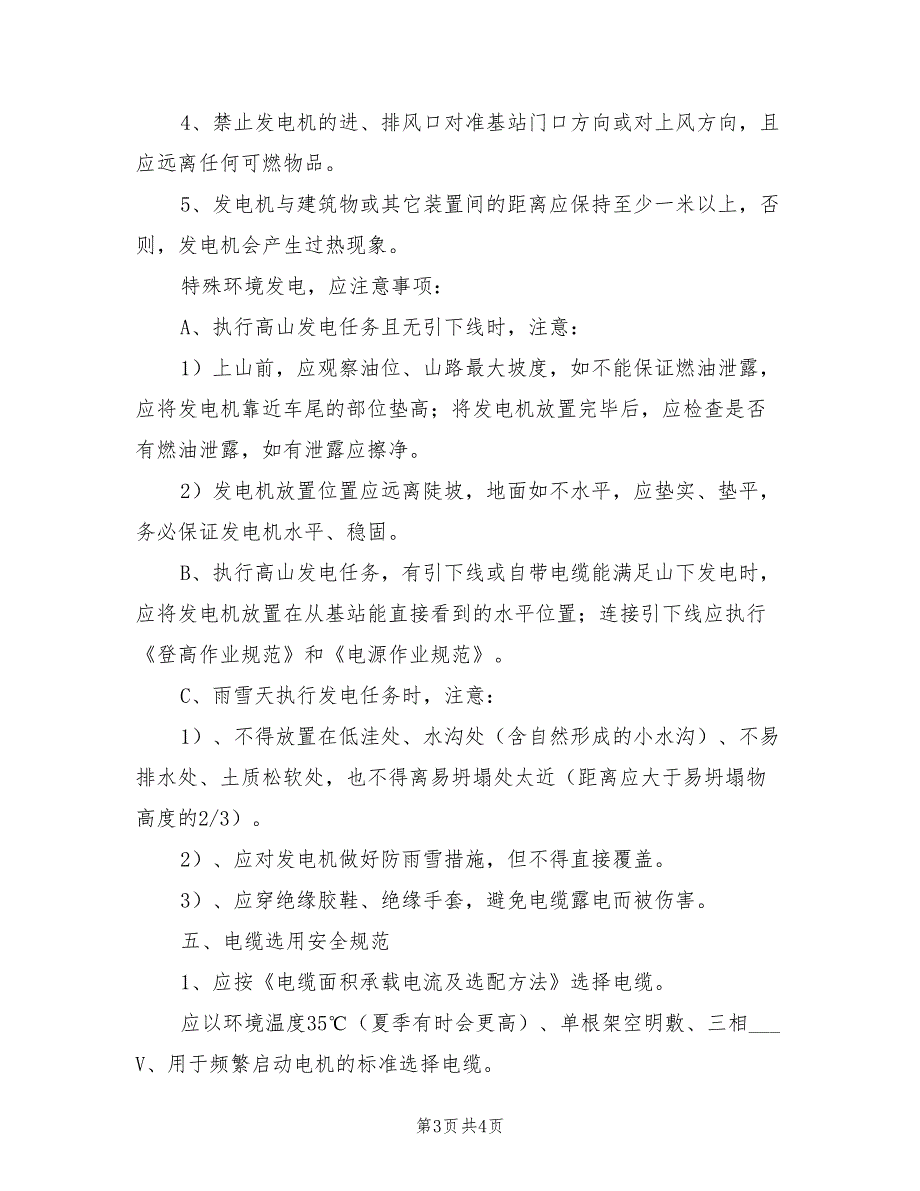 4、禁止发电机的进、排风口对准基站门口方向或对上风方向，且
应远离任何可燃物品。
5、发电机与建筑物或其它装置间的距离应保持至少一米以上，否
则，发电机会产生过热现象。
特殊环境发电，应注意事项：
A、执行高山发电任务且无引下线时，注意：
1）上山前，应观察油位、山路最大坡度，如不能保证燃油泄露，
应将发电机靠近车尾的部位垫高；将发电机放置完毕后，应检查是否
有燃油泄露，如有泄露应擦净。
2）发电机放置位置应远离陡坡，地面如不水平，应垫实、垫平，
务必保证发电机水平、稳固。
B、执行高山发电任务，有引下线或自带电缆能满足山下发电时，
应将发电机放置在从基站能直接看到的水平位置；连接引下线应执行
《登高作业规范》和《电源作业规范》。
C、雨雪天执行发电任务时，注意：
1）、不得放置在低洼处、水沟处（含自然形成的小水沟）、不易
排水处、土质松软处，也不得离易坍塌处太近（距离应大于易坍塌物
高度的2/3）。
2）、应对发电机做好防雨雪措施，但不得直接覆盖。
3）、应穿绝缘胶鞋、绝缘手套，避免电缆露电而被伤害。
五、电缆选用安全规范
1、应按《电缆面积承载电流及选配方法》选择电缆。
应以环境温度35℃（夏季有时会更高）、单根架空明敷、三相___
V、用于频繁启动电机的标准选择电缆。
第3页共4页